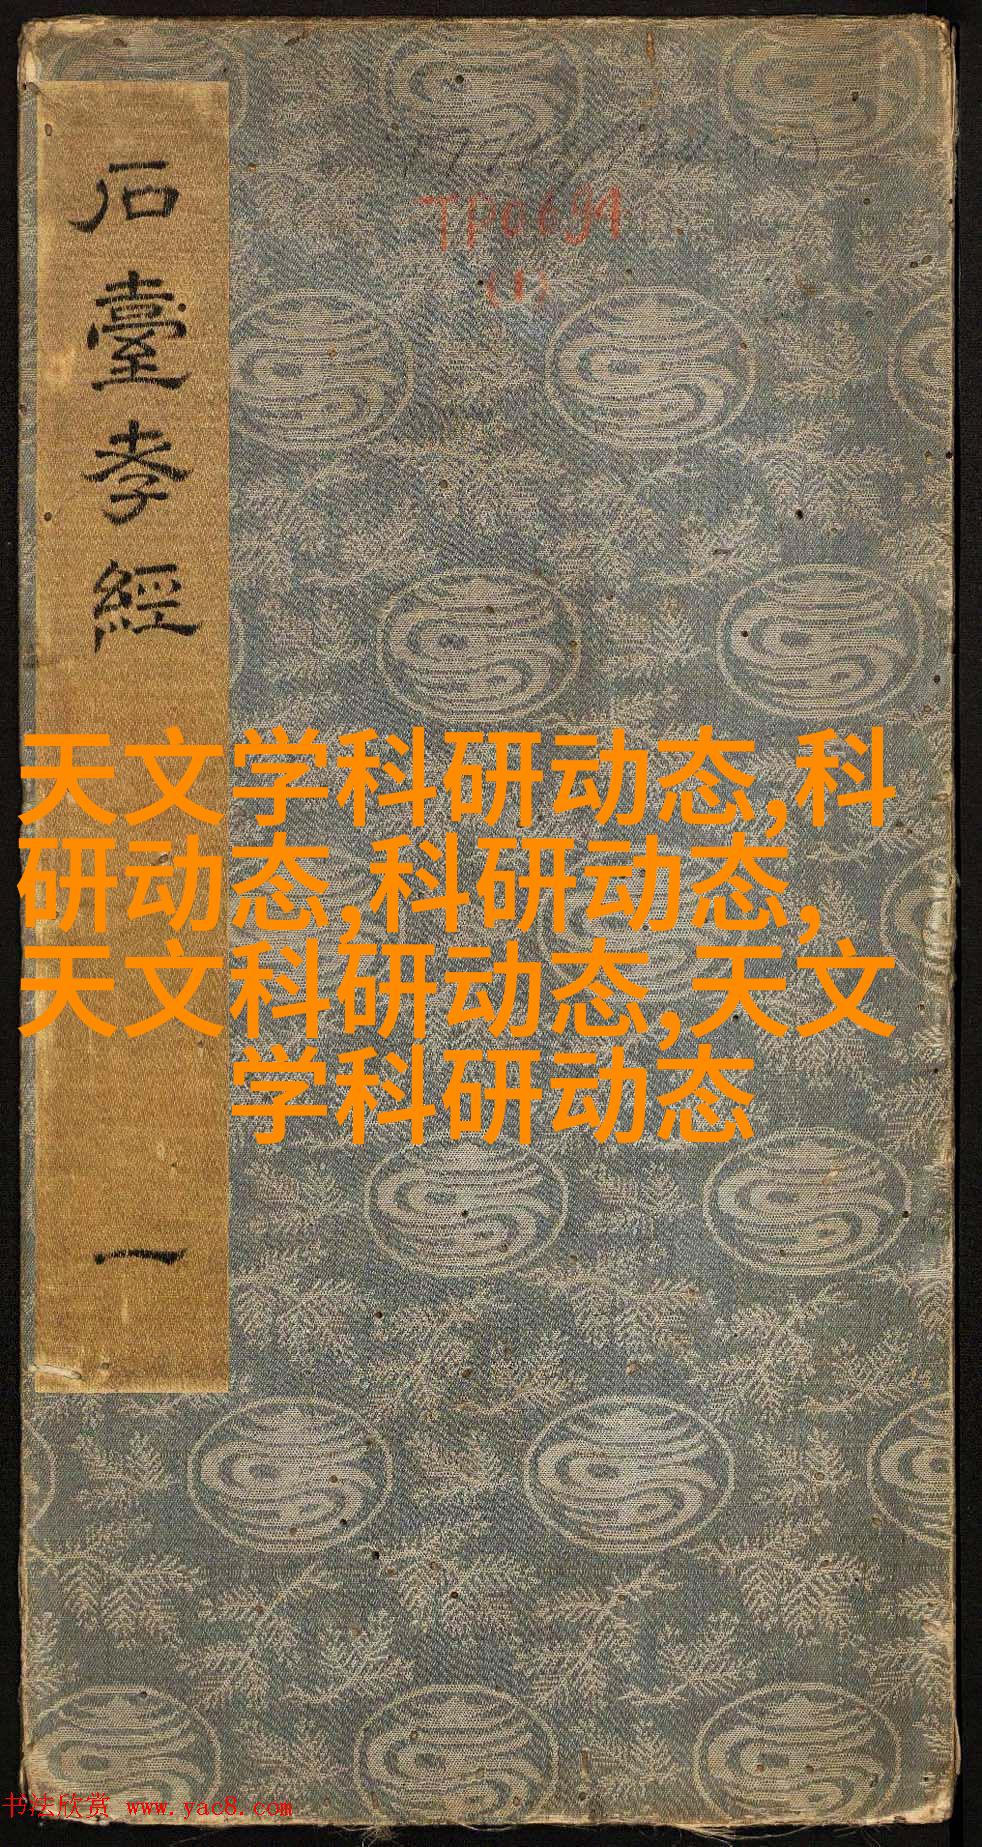 石臺孝經
一
TP0691
(1)
天文学科研动态,科
研动态,科研动态,
天文科研动态,天文
学科研动态
书法欣赏 www.yac8.com